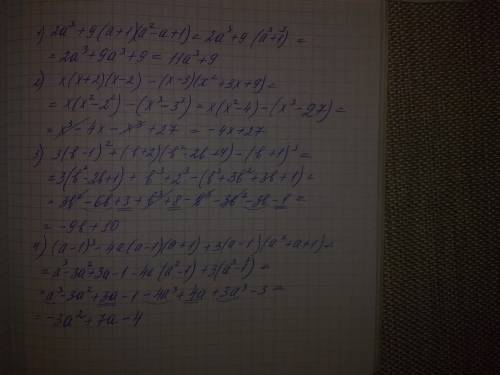 1) 2a³+9(a+1)(a²-a+1)= 2a³+9(a³+1³)=
= 2a³+9a³+9 = 11a³+9
2) x(x+2)(x-2) - (x-3)(x²+3x+9)=
= x(x²-2²) - (x³-3³)= x(x²-4)-(x³-27)=
= x³-4x-x³+27 = -4x+27
3) 3(b-1)²+(b+2)(b²-2b+4)-(b+1)³=
=3(b²-2b+1)+ b³+2³-(b³+3b²+3b+1)=
=3b²-6b+3+b³+8-b³-3b²-3b-1=
= -9b+10
4) (a-1)³-4a(a-1)(a+1)+3(a-1)(a²+a+1)=
=a³-3a²+3a-1-4a(a²-1)+3(a³-1)=
=a³-3a²+3a-1-4a³+4a+3a³-3=
=-3a²+7a-4